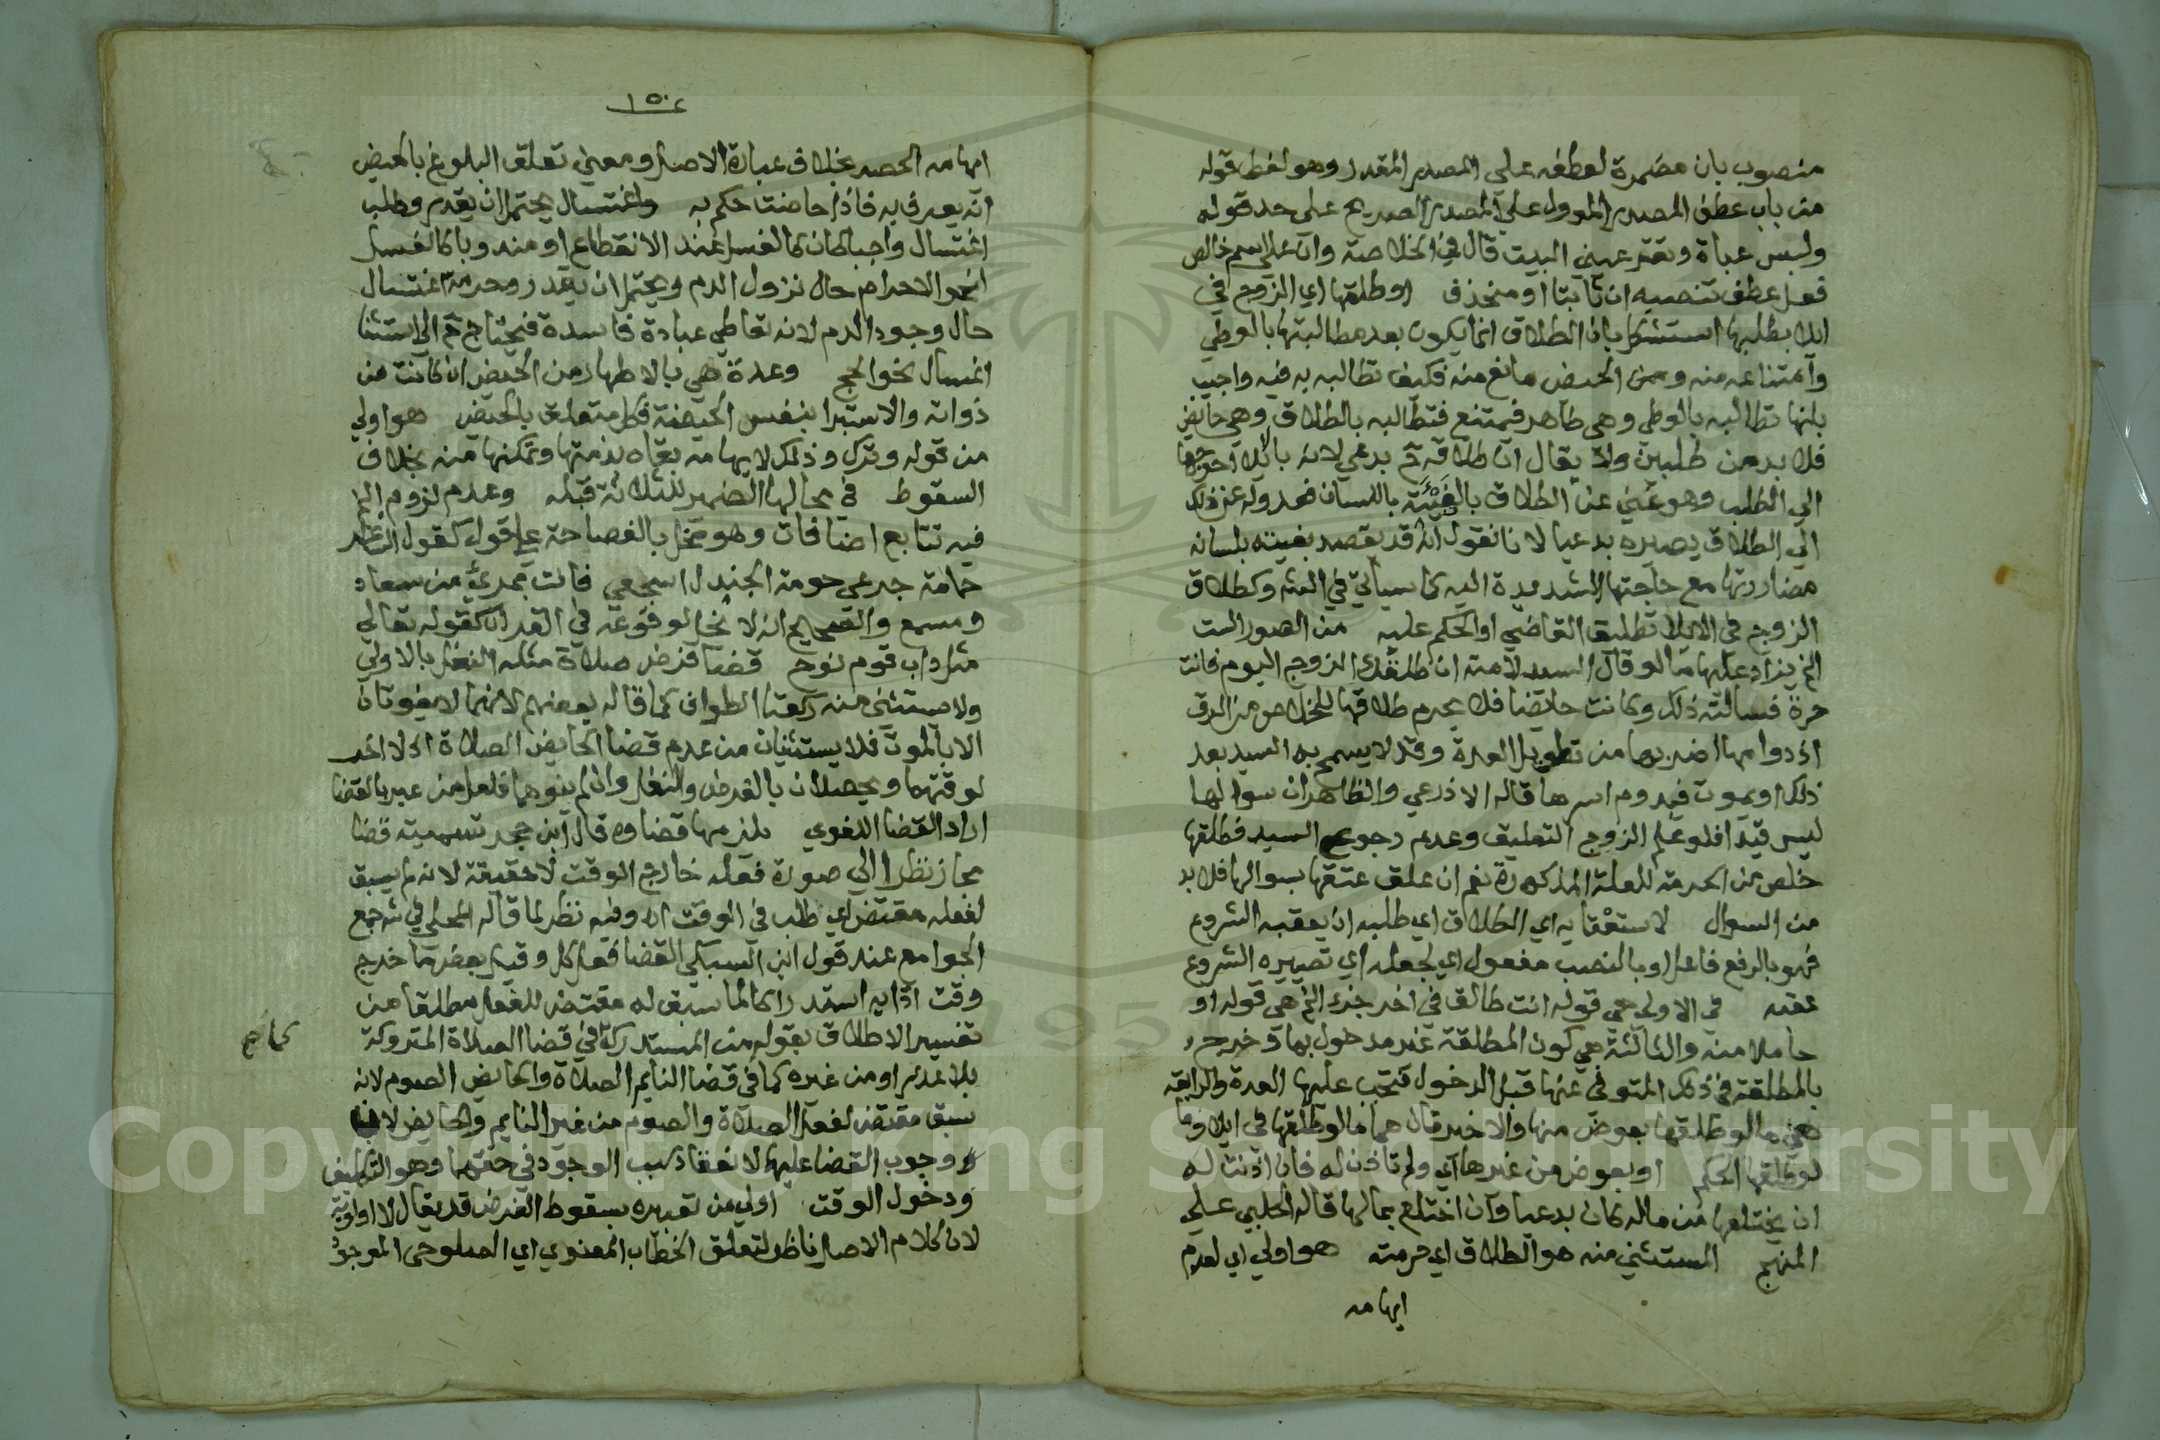 منصوب بان مضمرة لعطفه على المصدر المقدر وهو لفظ قوله
من باب عطف المصدر الموول على المصدر الصريح على حد قوله
ولبس عباة وتقر عيني البيت قال في الخلاصة وان على اسم خالص
فعل عطف تنصبه ان ثابتا او منحذف او طلقها اي الزوج في
ايلا بطلبها استشكل بان الطلاق انما يكون بعد مطالبتها بالوطي
وامتناعه منه وزمن الحيض مانع منه فكيف تطالبه به فيه واجيب
بانها تطالبه بالوطي وهي طاهر فيمتنع فتطالبه بالطلاق وهي حايض
فلا بد من طلبين ولا يقال ان طلاقه ثم بدعي لانه بايلا احوجها
الي الطلب وهو غني عن الطلاق بالفيئة باللسان فعدوله عن ذلك
الي الطلاق يصيره بدعيا لانا نقول انه قد يقصد بفيئته بلسانه
مضاررتها مع حاجتها الشديدة اليه كما سياتي في المتن وكطلاق
الزوج في الايلا تطليق القاضي او الحكم عليه من الصور الست
الخ يزاد عليها ما لو قال السيد لامته ان طلقك الزوج اليوم فانت
حرة فسالته ذلك وكانت حايضا فلا يحرم طلاقها للخلاص من الرق
اذ دوامها اضر بها من تطويل العدة وقد لا يسمح به السيد بعد
ذلك او يموت فيدوم اسرها قاله الاذرعي والظاهر ان سوالها
ليس قيدا فلو علم الزوج التعليق وعدم رجوع السيد فطلقها
خلص من الحرمة للعلة المذكورة نعم ان علق عتقها بسوالها فلا بد
من السوال لاستعقابه اي الطلاق اي طلبه ان يعقبه الشروع
فهو بالرفع فاعل او بالنصب مفعول اي لجعله اي تصييره الشروع
عقبه في الاولى هي قوله انت طالق في اخر جزء الخ هي قوله او
حاملا منه والثالثة هي كون المطلقة غير مدخول بها وخرج
بالمطلقة في ذلك المتوفى عنها قبل الدخول فتجب عليها العدة والرابعة
هي ما لو طلقها بعوض منها والاخيرتان هما ما لو طلقها في ايلا وما
لو طلقها الحكم او بعوض من غيرها اي ولم تاذن له فان اذنت له
ان يختلعها من ماله كان بدعيا وان اختلع بمالها قاله الحلبي على
المنهج المستثنى منه هو الطلاق اي حرمته هو اولي اي لعدم
ايهامه
١٥٤
ايهامه الحصر بخلاف عبارة الاصل ومعنى تعلق البلوغ بالحيض
انه يعرف به فاذا حاضت حكم به واغتسال يحتمل ان يقدر وطلب
اغتسال واجبا كان كالغسل عند الانقطاع او مندوبا كالغسل
لنحو الاحرام حال نزول الدم ويحتمل ان يقدر وحرمة اغتسال
حال وجود الدم لانه تعاطي عبادة فاسدة فيحتاج ثم الى استثنا
اغتسال نحو الحج وعدة هي بالاطهار من الحيض ان كانت من
ذواته والاستبرا بنفس الحيضة فكل متعلق بالحيض هو اولي
من قوله وترك وذلك لايهامه بقاه بذمتها وتمكنها منه بخلاف
السقوط في محالها الضمير للثلاثة قبله وعدم لزوم الخ
فيه تتابع اضافات وهو مخل بالفصاحة على قول كقول الشاعر
حمامة جرعى حومة الجندل اسجعي فانت بمرئ من سعاد
ومسمع والصحيح انه لا يخل لوقوعه في القران كقوله تعالي
مثل داب قوم نوح قضا فرض صلاة مثله النفل بالاولي
ولا يستثنى منه ركعتا الطواف كما قاله بعضهم لانهما لا يفوتان
الا بالموت فلا يستثنيان من عدم قضا الحايض الصلاة اذ لا اخر
لوقتهما ويحصلان بالفرض والنفل وان لم ينوهما فلعل من عبر بالقضا
اراد القضا اللغوي يلزمها قضاوه قال ابن حجر تسميته قضا
مجاز نظرا الي صورة فعله خارج الوقت لا حقيقة لانه لم يسبق
لفعله مقتض اي طلب في الوقت اه وفيه نظر لما قاله المحلي في شرح جمع
الجوامع عند قول ابن السبكي القضا فعل كل وقيل بعض ما خرج
وقت ادايه استدراكا لما سبق له مقتض للفعل مطلقا من
تفسير الاطلاق بقوله من المستدرك كما في قضا الصلاة المتروكة
كما صح
بلا عذر او من غيره كما في قضا النايم الصلاة والحايض الصوم لانه
سبق مقتض لفعل الصلاة والصوم من غير النايم والحايض لا
ووجوب القضا عليهما لانعقاد سبب الوجود في حقهما وهو التكليف
ودخول الوقت اولي من تعبيره بسقوط الفرض قد يقال لا اولوية
لان كلام الاصل ناظر لتعلق الخطاب المعنوي اي الصلوحى الموجود
Copyright © King Saud University
1957